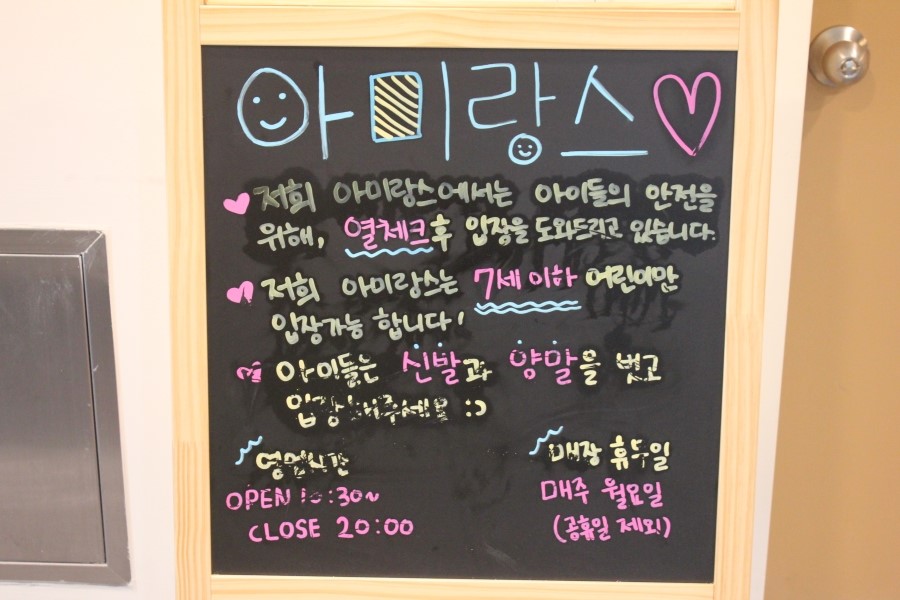 아미랑스
저희 아미랑스에서는 아이들의 안전을
위해, 열체크후 입장을 도와드리고 있습니다.
저희 아미랑스는 7세 이하 어린이만
입장가능 합니다!
아이들은 신발과 양말을 벗고
입장해주세요 :)
영업시간
OPEN 10:30~
CLOSE 20:00
매장 휴무일
매주 월요일
(공휴일 제외)